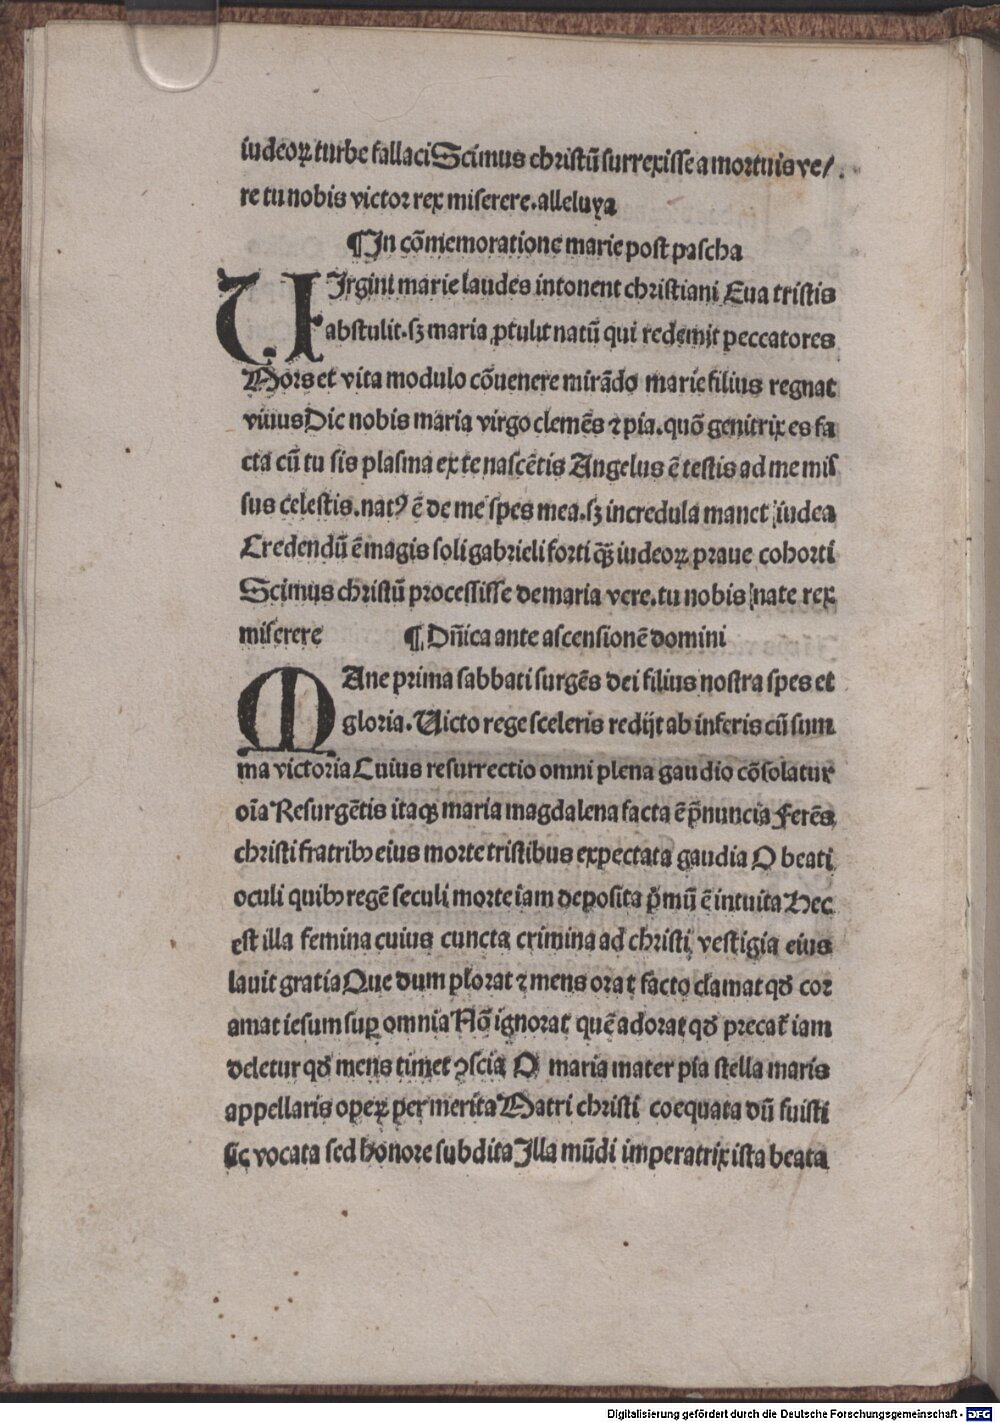 iudeoꝝ turbe fallaci Scimus christū surrexisse a mortuis ve/
re tu nobis victor rex miserere. alleluya
¶ In cōmemoratione marie post pascha
VIrgini marie laudes intonent christiani Eua tristis
abstulit. sꝫ maria ꝓtulit natū qui redemit peccatores
Mors et vita modulo cōuenere mirādo marie filius regnat
viuus Dic nobis maria virgo clemēs ⁊ pia. quō genitrix es fa
cta cū tu sis plasma ex te nascētis Angelus ē testis ad me mis
sus celestis. natꝰ ē de me spes mea. sꝫ incredula manet iudea
Credendū ē magis soli gabrieli forti qꝫ̄ iudeoꝝ praue cohorti
Scimus christū processisse de maria vere. tu nobis nate rex
miserere ¶ Dn̄ica ante ascensionē domini
MAne prima sabbati surgēs dei filius nostra spes et
gloria. Uicto rege sceleris redijt ab inferis cū sum
ma victoria Cuius resurrectio omni plena gaudio cōsolatur
oīa Resurgētis itaqꝫ maria magdalena facta ē p̄nuncia Ferēs
christi fratribꝰ eius morte tristibus expectata gaudia O beati
oculi quibꝰ regē seculi morte iam deposita p̄mū ē intuita Hec
est illa femina cuius cuncta crimina ad christi vestigia eius
lauit gratia Que dum plorat ⁊ mens orat facto clamat qđ cor
amat iesum suꝑ omnia Nō ignorat quē adorat qđ precat̄ iam
deletur qđ mens timet ꝯscia O maria mater pia stella maris
appellaris opeꝝ per merita Matri christi coequata dū fuisti
sic vocata sed honore subdita Illa mūdi imperatrix ista beata
Digitalisierung gefördert durch die Deutsche Forschungsgemeinschaft - DFG